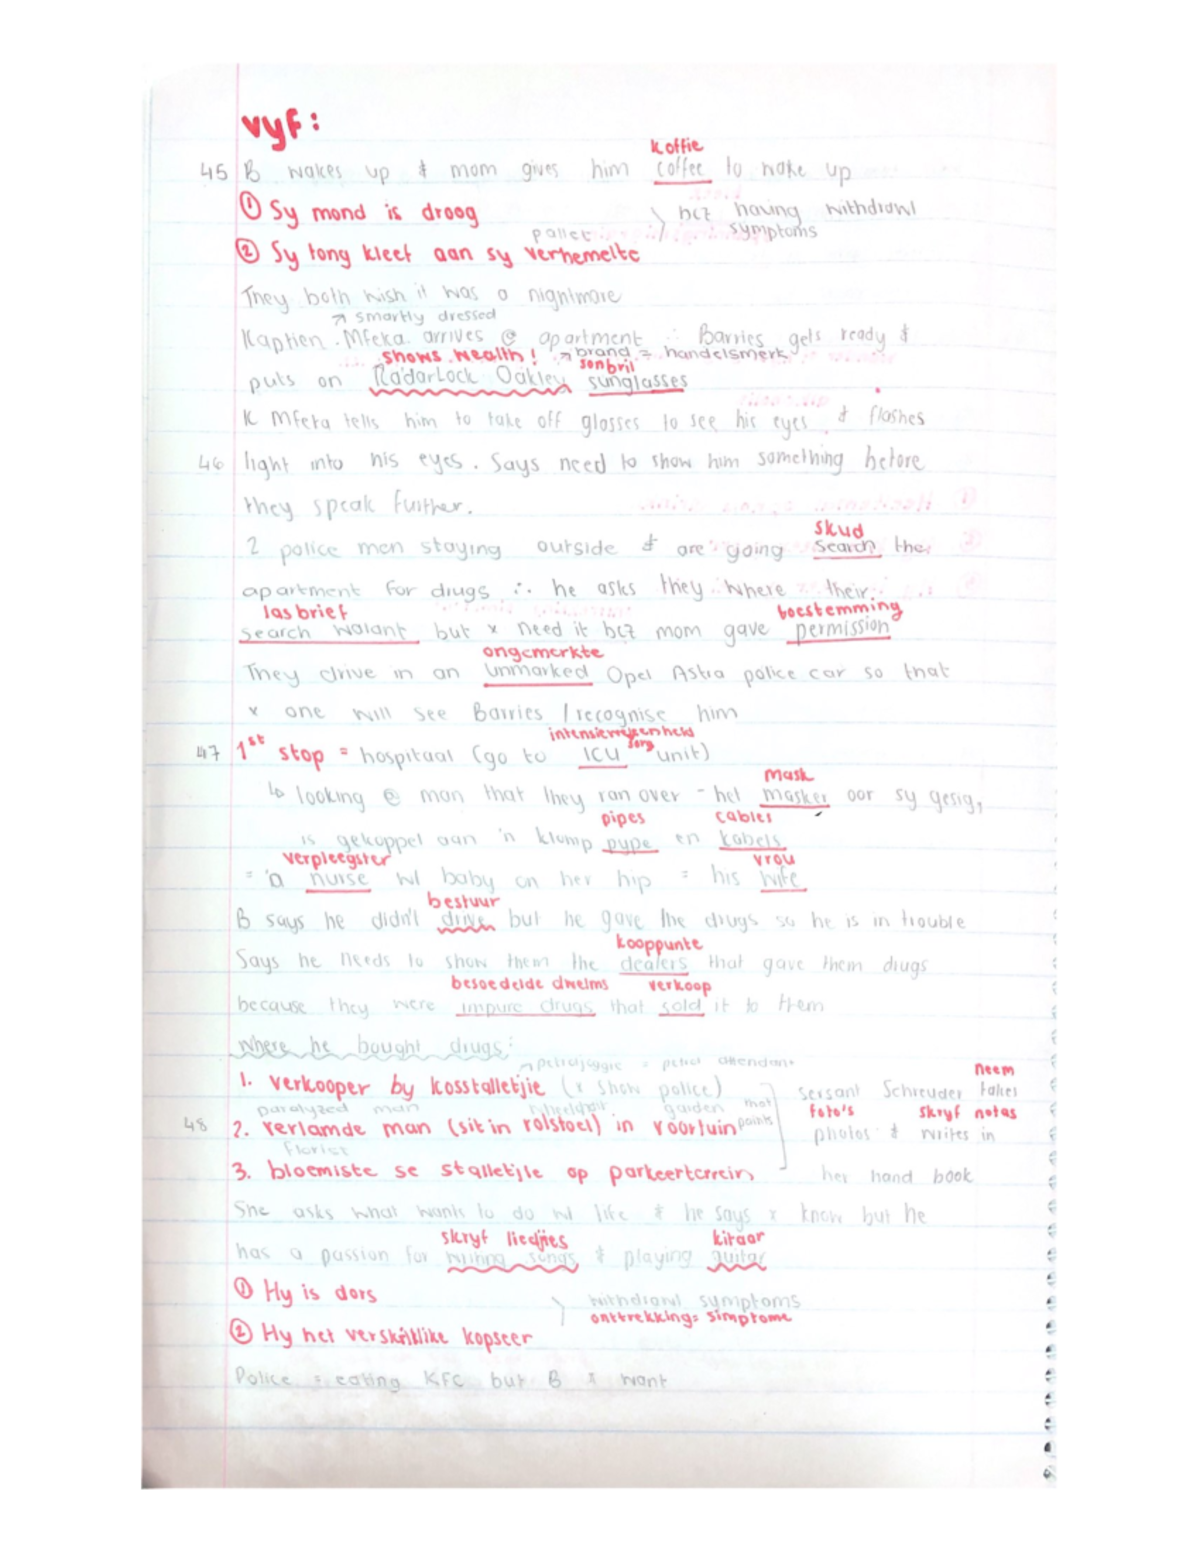 vyf:
koffie
45 B wakes up & mom gives him coffee to wake up
① Sy mond is droog
bcz having withdrawl
pallet symptoms
② Sy tong kleef aan sy verhemelte
They both wish it was a nightmare
↗ smartly dressed
Kaptien Mfeka arrives @ apartment ∴ Barries gets ready &
shows wealth! ↗ brand = handelsmerk
sonbril
puts on RadarLock Oakley sunglasses
K Mfeka tells him to take off glasses to see his eyes & flashes
46 light into his eyes. Says need to show him something before
they speak further.
skud
2 police men staying outside & are going search the
apartment for drugs ∴ he asks they where their
lasbrief toestemming
search warant but x need it bcz mom gave permission
ongemerkte
They drive in an unmarked Opel Astra police car so that
x one will see Barries / recognise him
47 1st stop = hospitaal (go to ICU unit)
mask
↳ looking @ man that they ran over - het masker oor sy gesig,
pipes cables
is gekoppel aan 'n klomp pype en kabels
verpleegster vrou
= 'a nurse w/ baby on her hip = his wife
bestuur
B says he didn't drive but he gave the drugs so he is in trouble
kooppunte
Says he needs to show them the dealers that gave them drugs
besoedelde dwelms verkoop
because they were impure drugs that sold it to them
where he bought drugs:
↗ petroljoggie = petrol attendant
neem
1. verkooper by kosstalletjie (x show police) sersant Schreuder takes
paralyzed man wheelchair garden foto's skryf notas
48 2. verlamde man (sit in rolstoel) in voortuin photos & writes in
florist
3. bloemiste se stalletjie op parkeerterrein her hand book
She asks what wants to do w/ life & he says x know but he
skryf liedjies kitaar
has a passion for writing songs & playing guitar
① Hy is dors
withdrawl symptoms
onttrekking: simptome
② Hy het verskriklike kopseer
Police = eating KFC but B x want